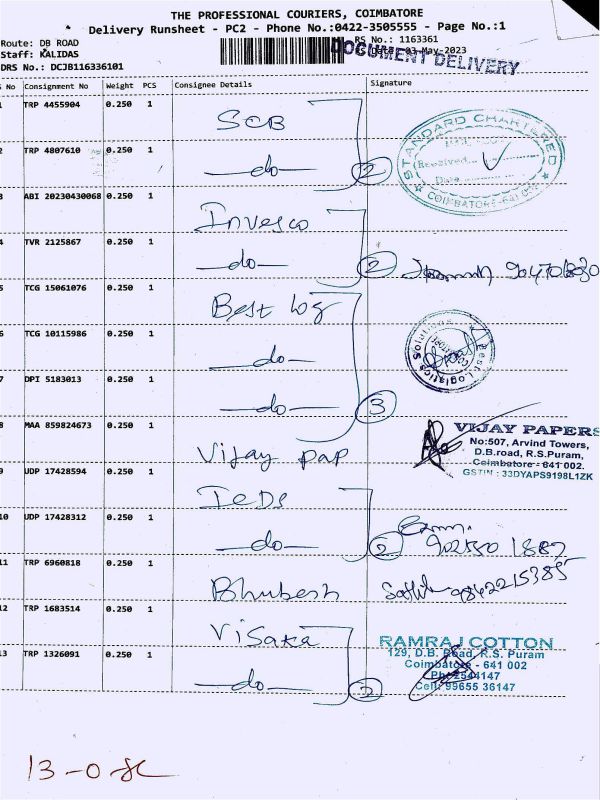 THE PROFESSIONAL COURIERS, COIMBATORE
Delivery Runsheet - PC2 - Phone No.:0422-3505555 - Page No.:1
Route: DB ROAD
Staff: KALIDAS
DRS No.: DCJB116336101
RS No.: 1163361
03-May-2023
DOCUMENT DELIVERY
No Consignment No Weight PCS Consignee Details Signature
1 TRP 4455904 0.250 1 SCB
2 TRP 4807610 0.250 1 -do- 2
STANDARD CHARTERED
Received
Date
COIMBATORE-641
3 ABI 20230430068 0.250 1 Invesco
4 TVR 2125867 0.250 1 -do- 2
5 TCG 15061076 0.250 1 Best log
6 TCG 10115986 0.250 1 -do-
7 DPI 5183013 0.250 1 -do- 3
Best Logistics Solutions
8 MAA 859824673 0.250 1 Vijay pap
VIJAY PAPERS
No:507, Arvind Towers,
D.B.road, R.S.Puram,
Coimbatore - 641 002.
GSTIN : 33DYAPS9198L1ZK
9 UDP 17428594 0.250 1
10 UDP 17428312 0.250 1 -do- 2
11 TRP 6960818 0.250 1 Bhubesh
9842215385
12 TRP 1683514 0.250 1 Visaka
13 TRP 1326091 0.250 1 -do- 2
RAMRAJ COTTON
129, D.B. Road, R.S. Puram
Coimbatore - 641 002
Ph: 2544147
Cell: 99655 36147